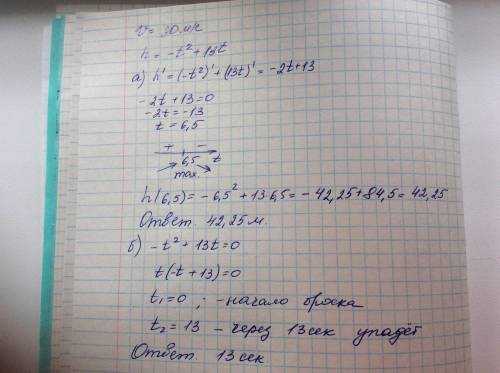 h = -t² + 13t
а) h' = (-t²)' + (13t)' = -2t+13
-2t + 13 = 0
-2t = -13
t = 6,5
+ -
6,5 t
max.
h(6,5) = -6,5² + 13·6,5 = -42,25 + 84,5 = 42,25
Ответ. 42,25 м.
б) -t² + 13t = 0
t(-t + 13) = 0
t₁ = 0 ; - начало броска
t₂ = 13 - через 13 сек упадёт
Ответ. 13 сек